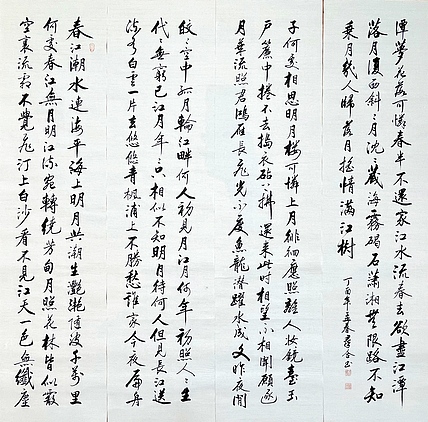 春江潮水連海平海上明月共潮生灩灩隨波千萬里
何處春江無月明江流宛轉繞芳甸月照花林皆似霰
空裏流霜不覺飛汀上白沙看不見江天一色無纖塵
皎〻空中孤月輪江畔何人初見月江月何年初照人〻生
代〻無窮已江月年〻只相似不知明月待何人但見長江送
流水白雲一片去悠悠青楓浦上不勝愁誰家今夜扁舟
子何處相思明月樓可憐上月徘徊應照離人妝鏡臺玉
戶簾中捲不去搗衣砧上拂還來此時相望不相聞願逐
月華流照君鴻雁長飛光不度魚龍潛躍水成文昨夜閑
潭夢花落可憐春半不還家江水流春去欲盡江潭
落月復西斜〻月沉〻藏海霧碣石瀟湘無限路不知
乘月幾人歸落月搖情滿江樹
丁酉年立春